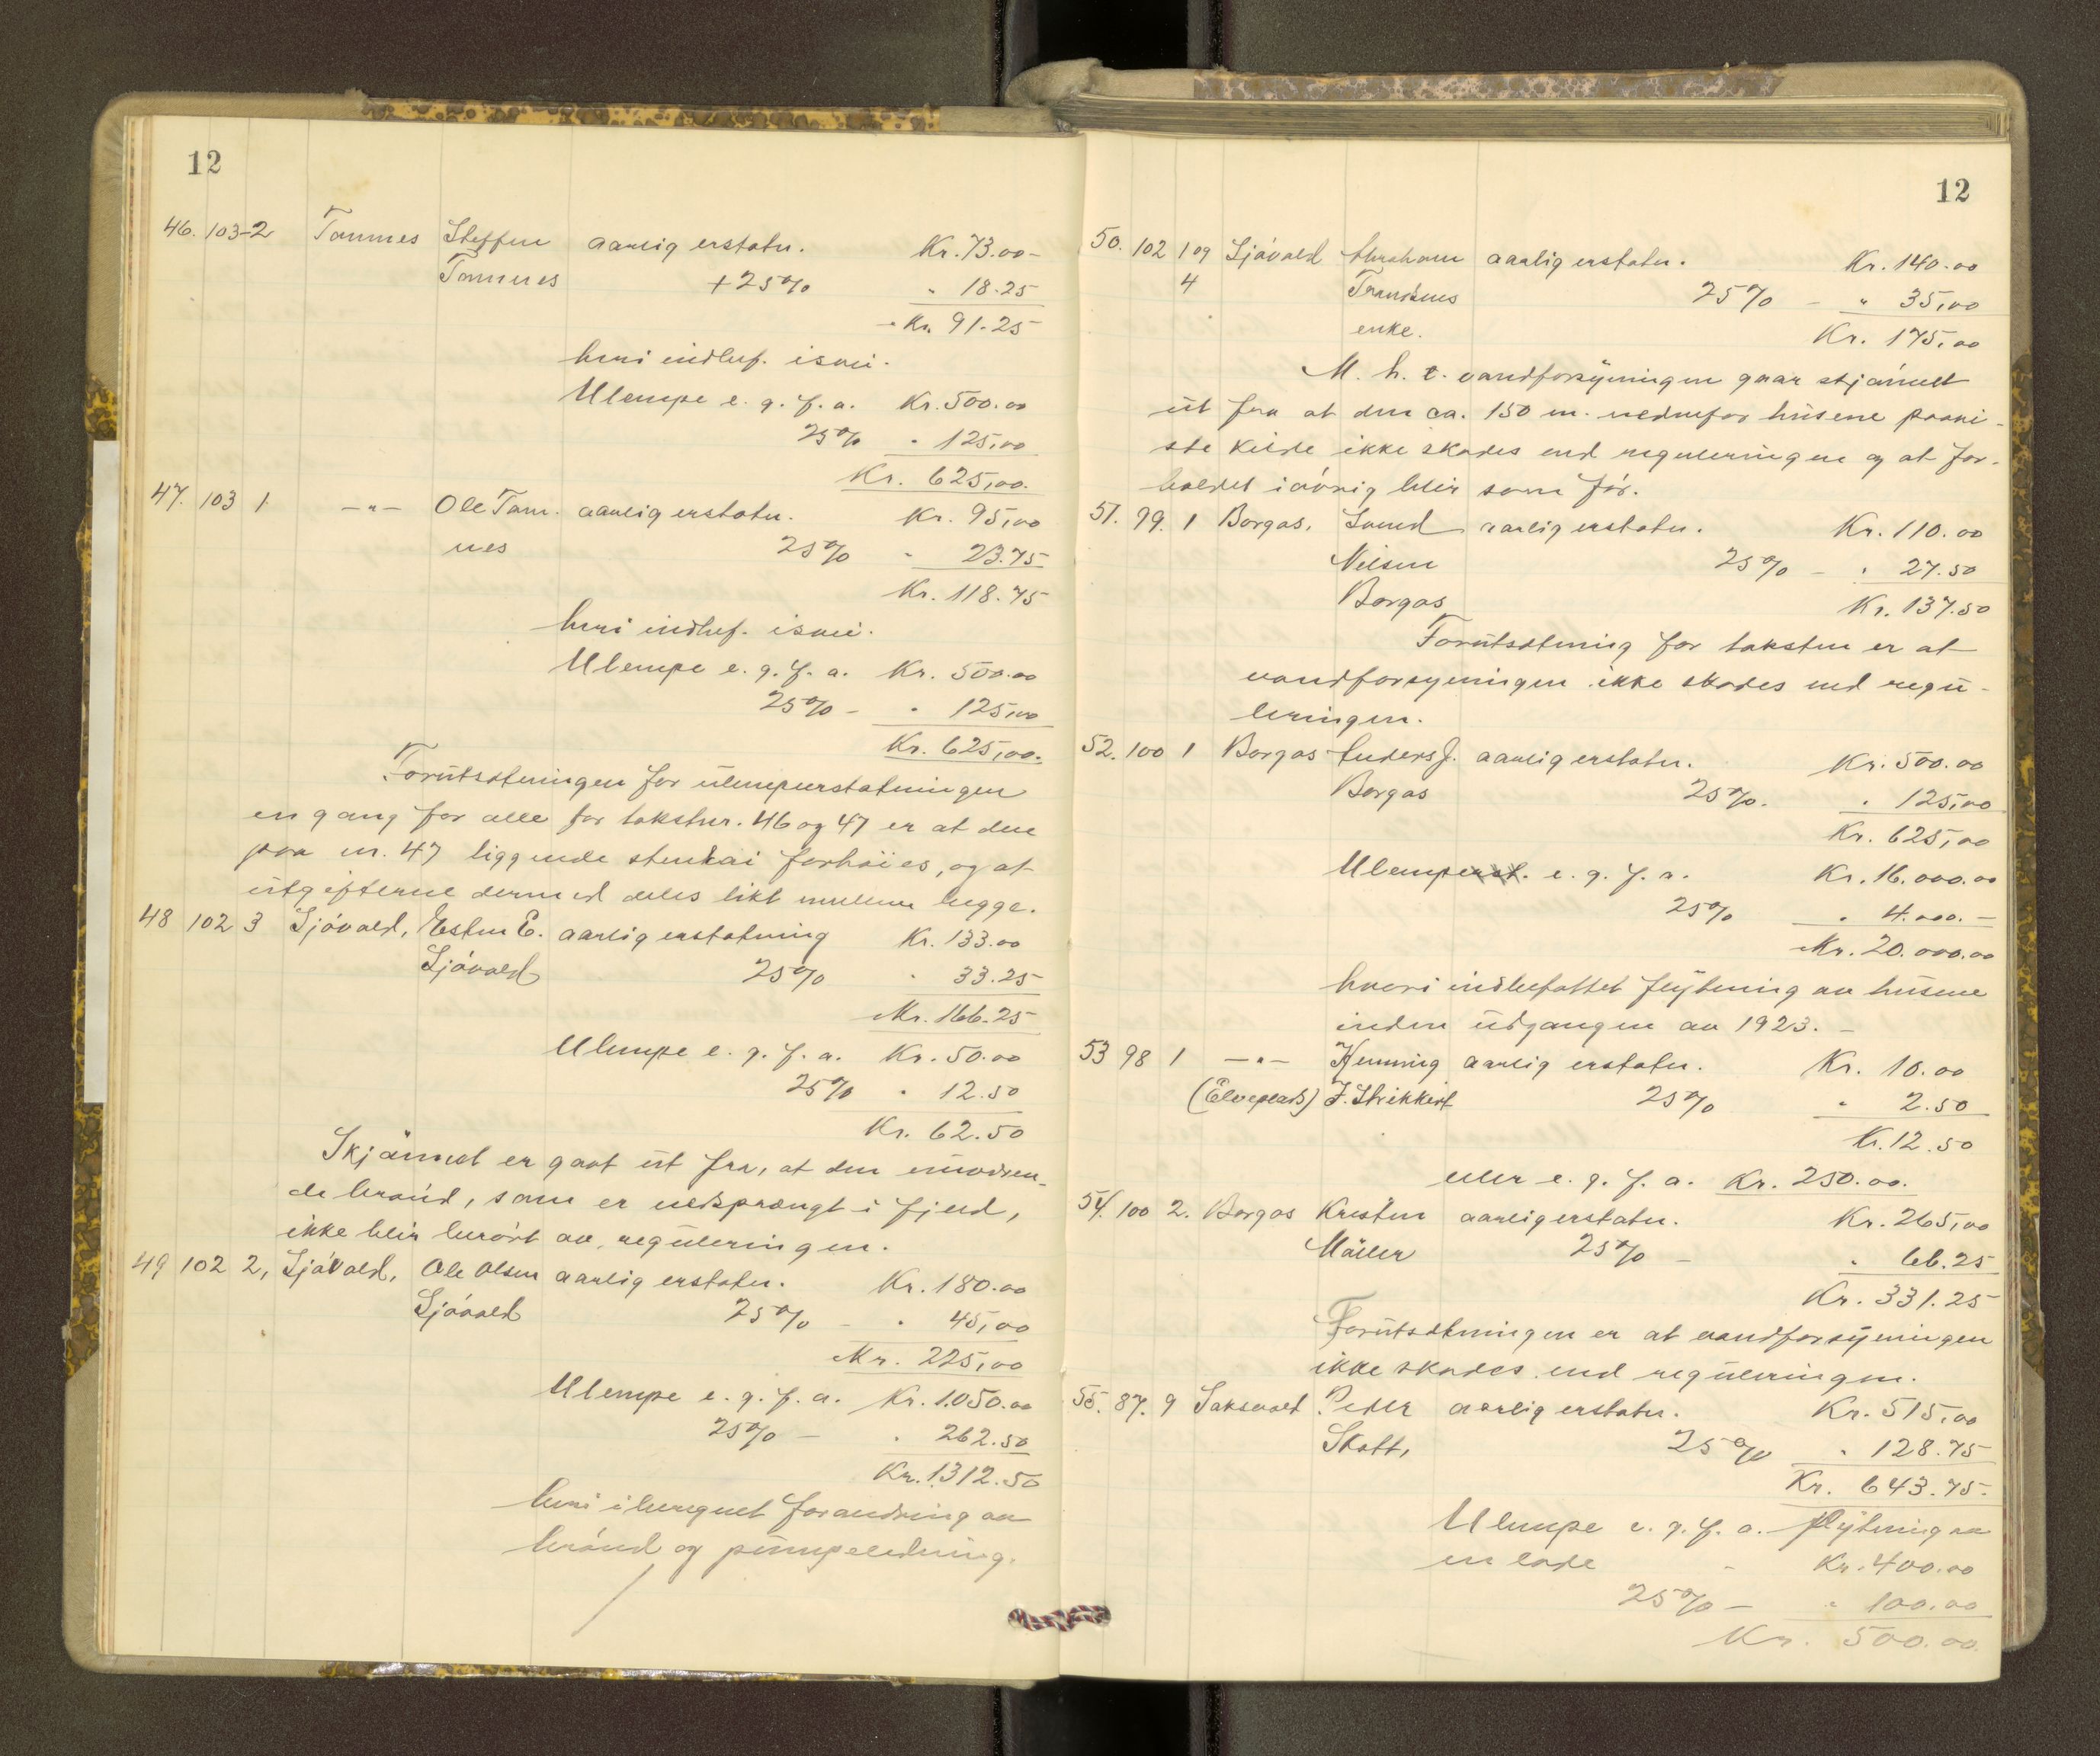 12
46. 103-2 Tannes Steffen aarlig erstatn. Kr. 73.00-
Tannes +25% " 18.25
Kr. 91.25
heri indbef. isvei.
Ulempe e. g. f. a. Kr. 500.00
25% " 125,00
Kr. 625,00.
47. 103 1 -"- Ole Tan- aarlig erstatn. Kr. 95,00
nes 25% " 23.75
Kr. 118.75
heri indbef. isvei.
Ulempe e. g. f. a. Kr. 500.00
25% - " 125,00
Kr. 625,00.
Forutsætningen for ulempeerstatningen
en gang for alle for takstnr. 46 og 47 er at den
paa nr. 47 liggende stenkai forhöies, og at
utgifterne dermed deles likt mellem begge.
48 102 3 Sjøvold, Esten E. aarlig erstatning Kr. 133.00
Sjøvold 25% " 33.25
Kr. 166.25
Ulempe e. g. f. a. Kr. 50.00
25% " 12.50
Kr. 62.50
Skjønnet er gaat ut fra, at den nuværen-
de brønd, som er nedsprængt i fjeld,
ikke blir berørt av reguleringen.
49 102 2, Sjøvold, Ole Olsen aarlig erstatn. Kr. 180.00
Sjøvold 25% - " 45,00
Kr. 225,00
Ulempe e. g. f. a. Kr. 1.050.00
25% - " 262.50
Kr. 1312.50
heri iberegnet forandring av
brønd og pumpeledning.
12
50. 102 109 Sjøvold Abraham aarlig erstatn. Kr. 140.00
4 25% - " 35,00
enke. Kr. 175,00
M. h. t. vandforsyningen gaar skjønnet
ut fra at den ca. 150 m. nedenfor husene paavi-
ste kilde ikke skades ved reguleringen og at for-
holdet iøvrig blir som før.
51. 99. 1 Borgas, Svend aarlig erstatn. Kr. 110.00
Nilsen 25% - " 27.50
Borgas Kr. 137.50
Forutsætning for taksten er at
vandforsyningen ikke skades ved regu-
leringen.
52. 100 1 Borgas Anders J. aarlig erstatn. Kr. 500.00
Borgas 25%. " 125,00
Kr. 625,00
Ulempe e. g. f. a. Kr. 16.000.00
25% " 4.000.-
Kr. 20.000.00
hvori indbefattet flytning av husene
inden udgangen av 1923. -
53 98 1 -"- Henning aarlig erstatn. Kr. 10.00
(Elveplads) J. Strikkert 25% " 2.50
Kr. 12.50
eller e. g. f. a. Kr. 250.00.
54. 100 2. Borgas Kristen aarlig erstatn. Kr. 265,00
Møller 25% - " 66.25
Kr. 331.25
Forutsætningen er at vandforsyningen
ikke skades ved reguleringen.
55. 87. 9 Saksvold Peder aarlig erstatn. Kr. 515,00
Skott, 25% " 128.75
Kr. 643.75.
Ulempe e. g. f. a. flytning av
en lade - Kr. 400.00
25% - " 100.00
Kr. 500.00.